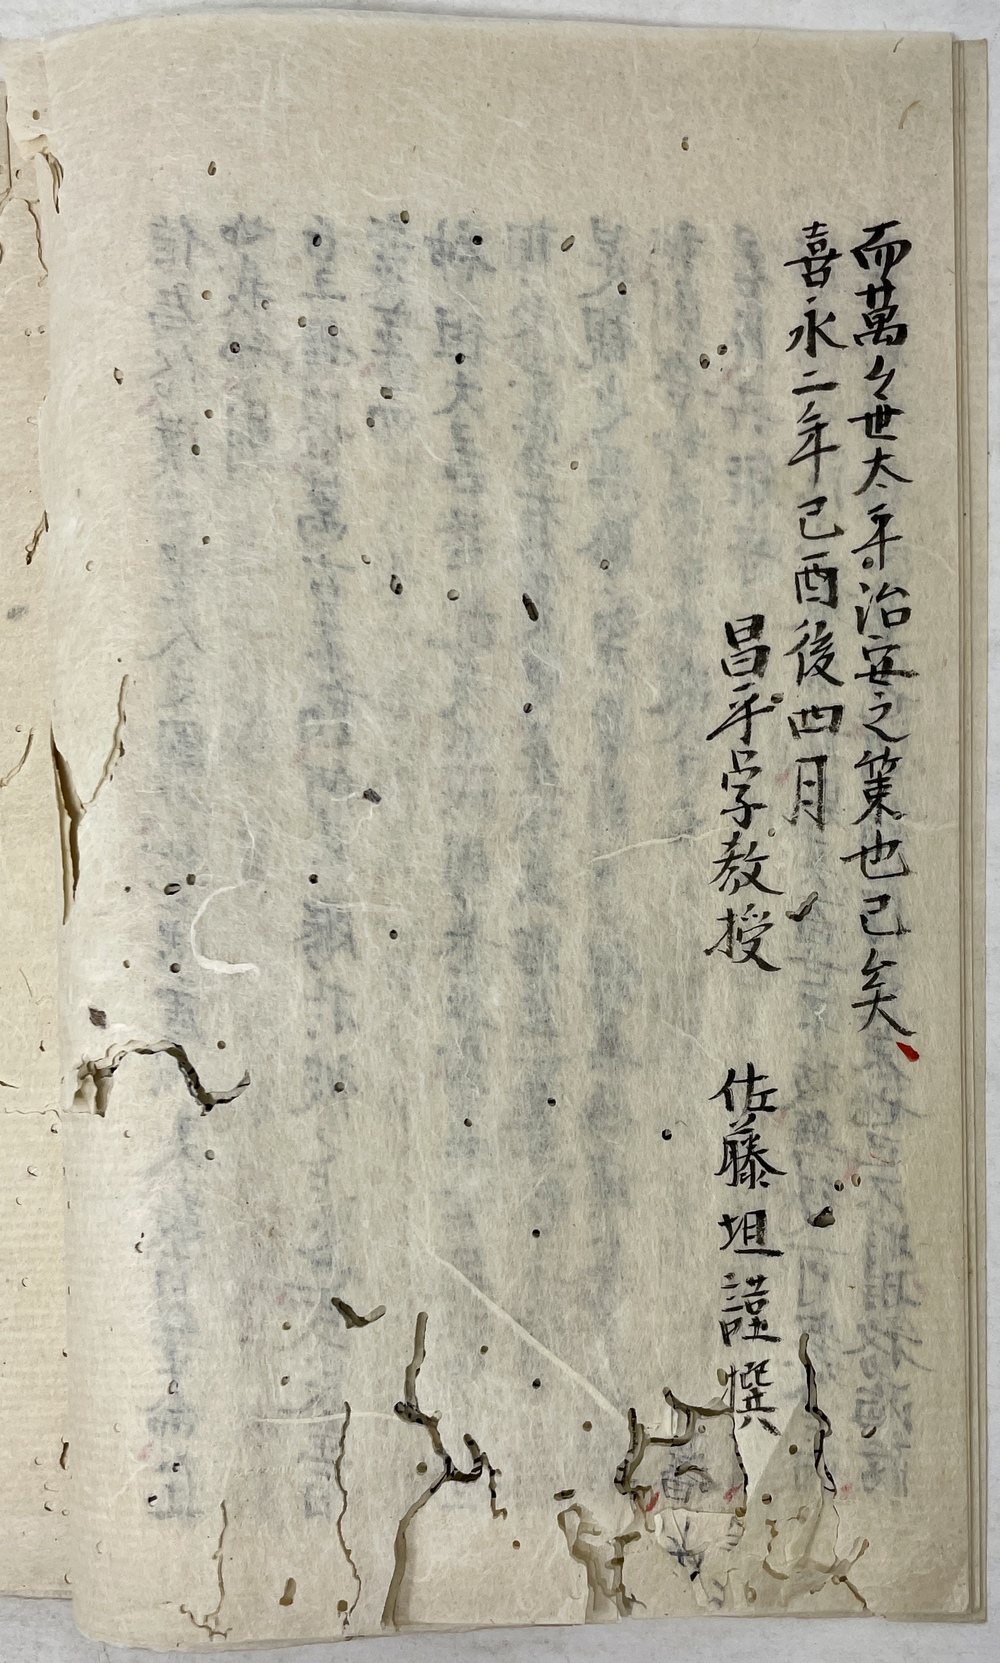 而萬々世太平治安之策也已矣
喜永二年己酉後四月
昌平学教授　佐藤坦謹撰